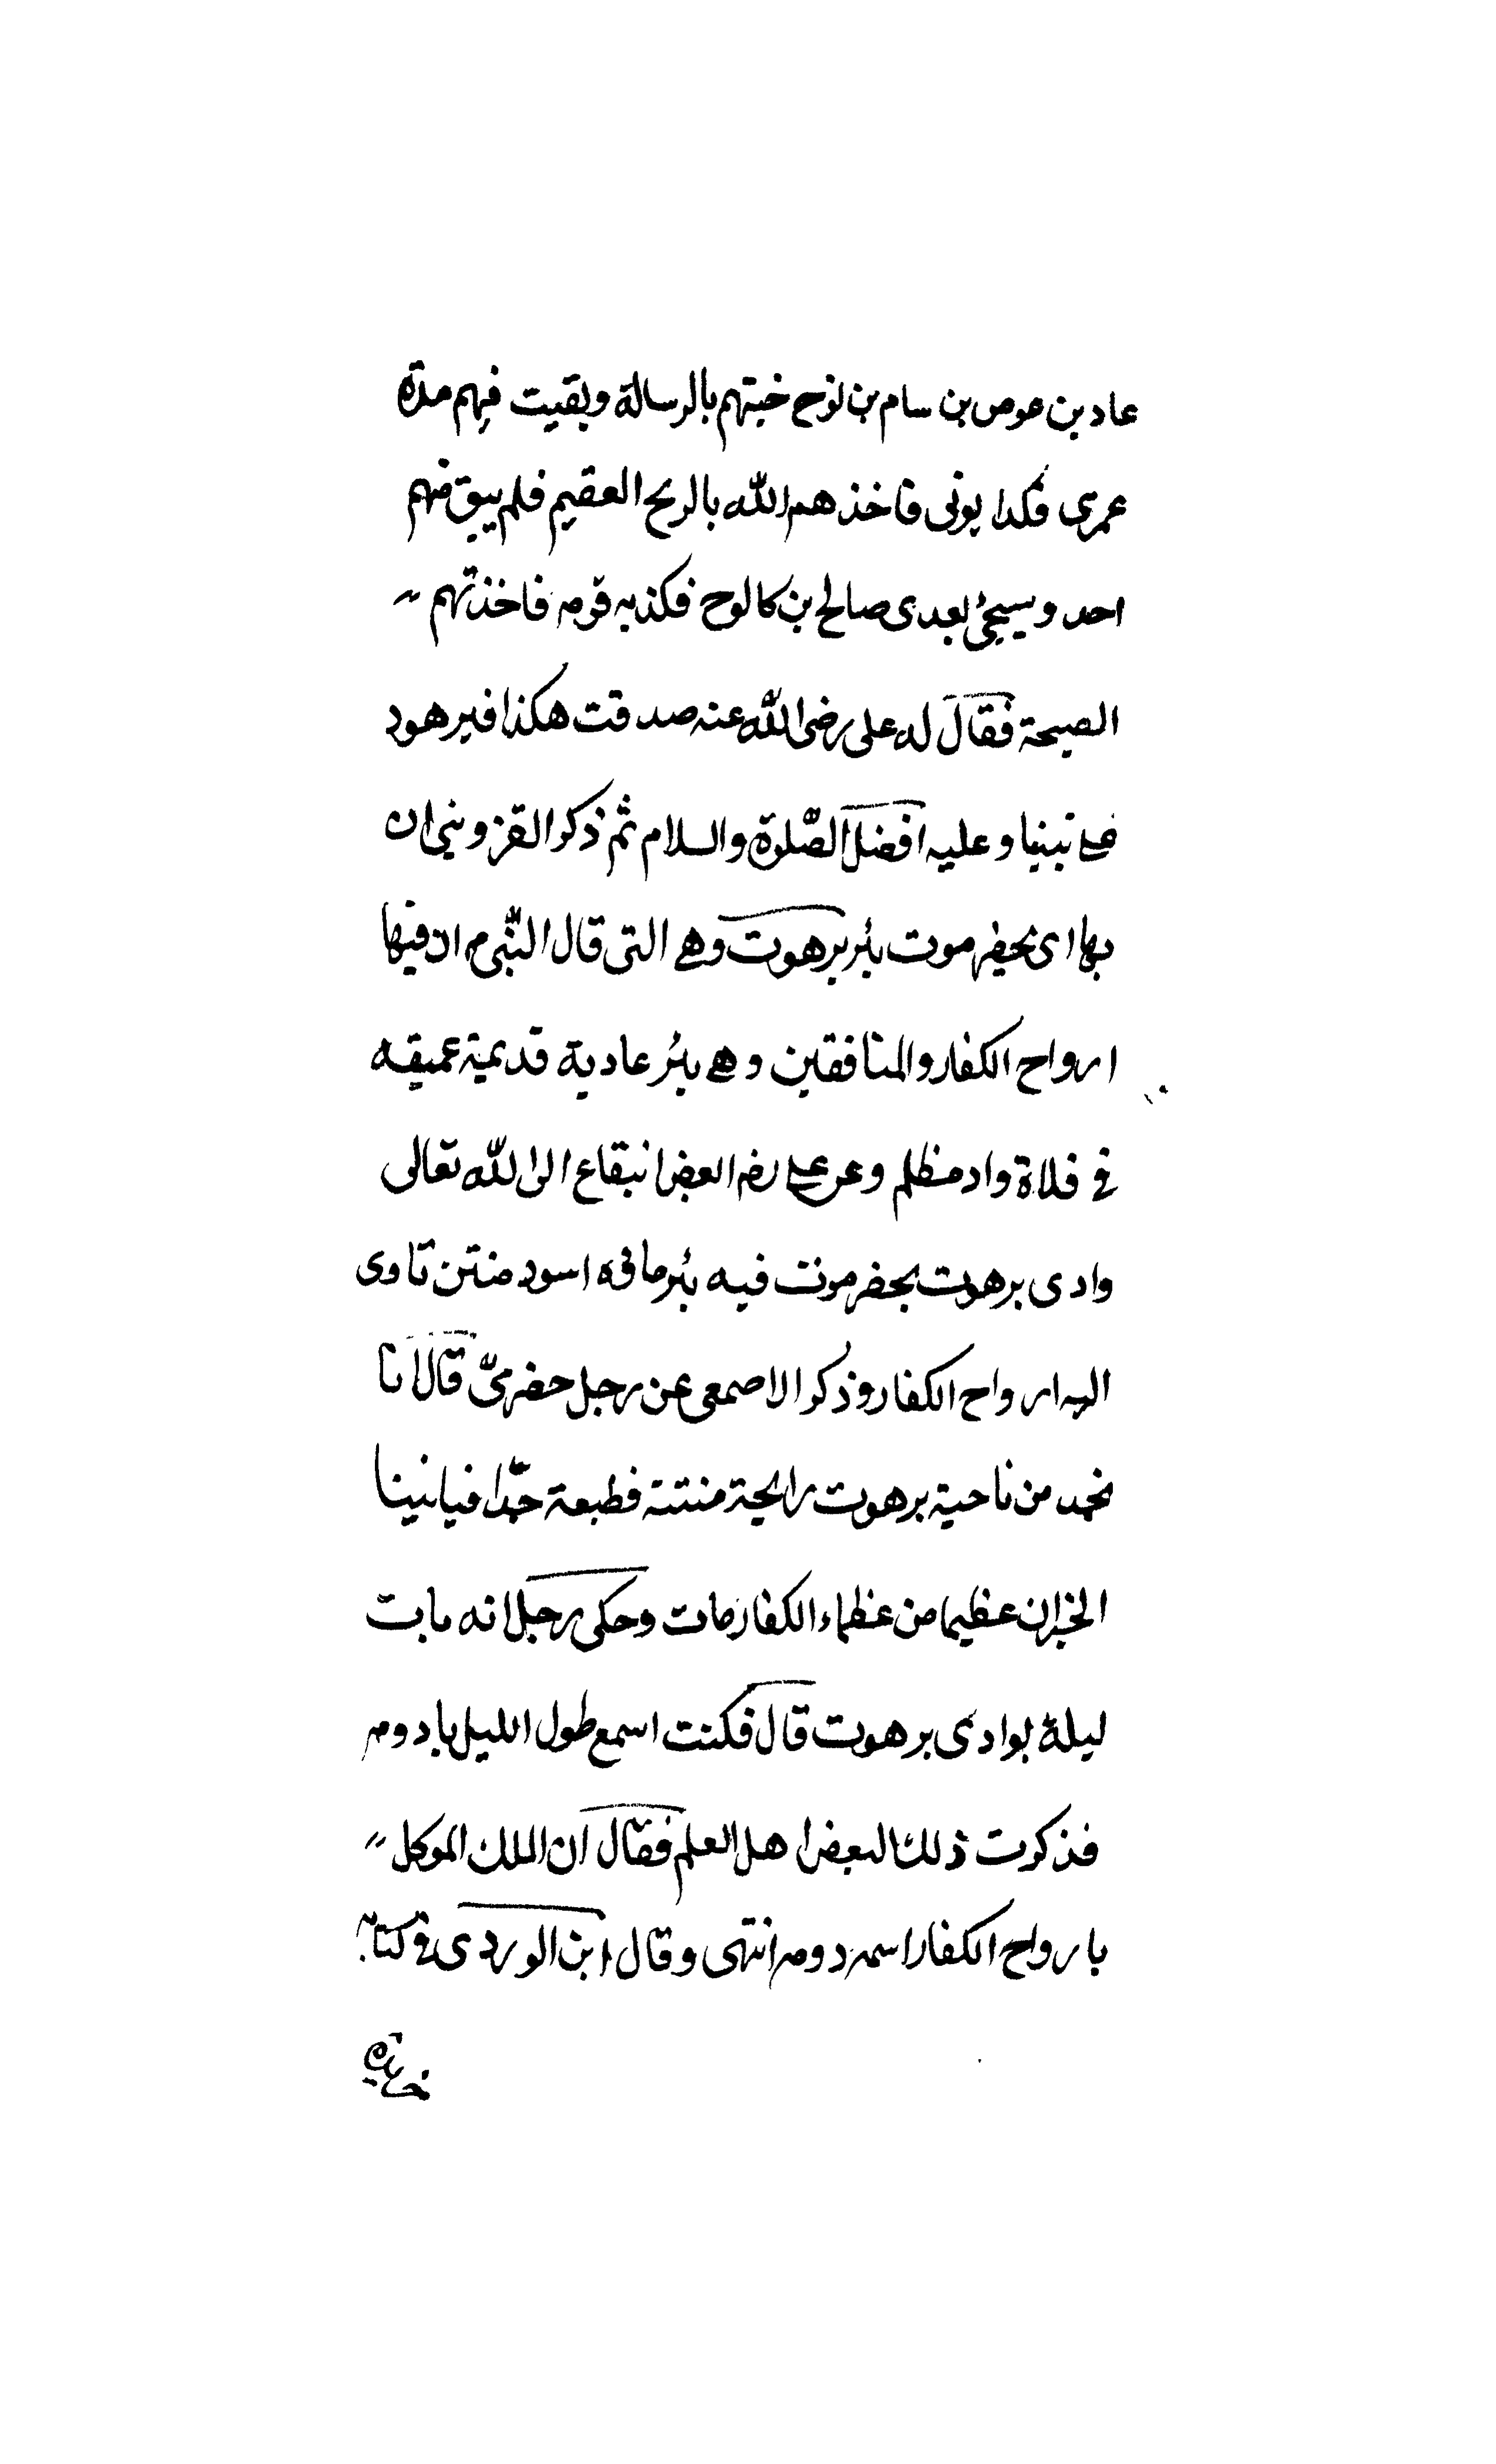 عاد بن عوص بن سام بن نوح جئتهم بالرسالة وبقيت فيهم مدة
عمرى فكذبونى فاخذهم الله بالريح العقيم فلم يبق منهم
احد وسيجئ بعدى صالح بن كالوح فكذبه قومه فاخذتهم
الصيحة فقال له على رضى الله عنه صدقت هكذا قبر هود
على نبينا وعليه افضل الصّلوة والسلام ثم ذكر القزوينى ان
بها اى بحضرموت بئر برهوت وهى التى قال النّبى م ان فيها
ارواح الكفار والمنافقين وهى بئر عادية قديمة عميقه
فى فلاة واد مظلم وعن على رضه ابغض البقاع الى الله تعالى
وادى برهوت بحضرموت فيه بئر ماؤه اسود منتن تاوى
اليه ارواح الكفار وذكر الاصمعى عن رجل حضرمىّ قال انا
نجد من ناحية برهوت رايحة منتنة فظيعة جّدا فياتينا
الخبر ان عظيما من عظماء الكفار مات وحكى رجل انه بات
ليلة بوادى برهوت قال فكنت اسمع طول الليل يا دومه
فذكرت ذلك لبعض اهل العلم فقال ان الملك الموكل
بارواح الكفار اسمه دومه انتهى وقال ابن الوردى فى كتابه
خريدة